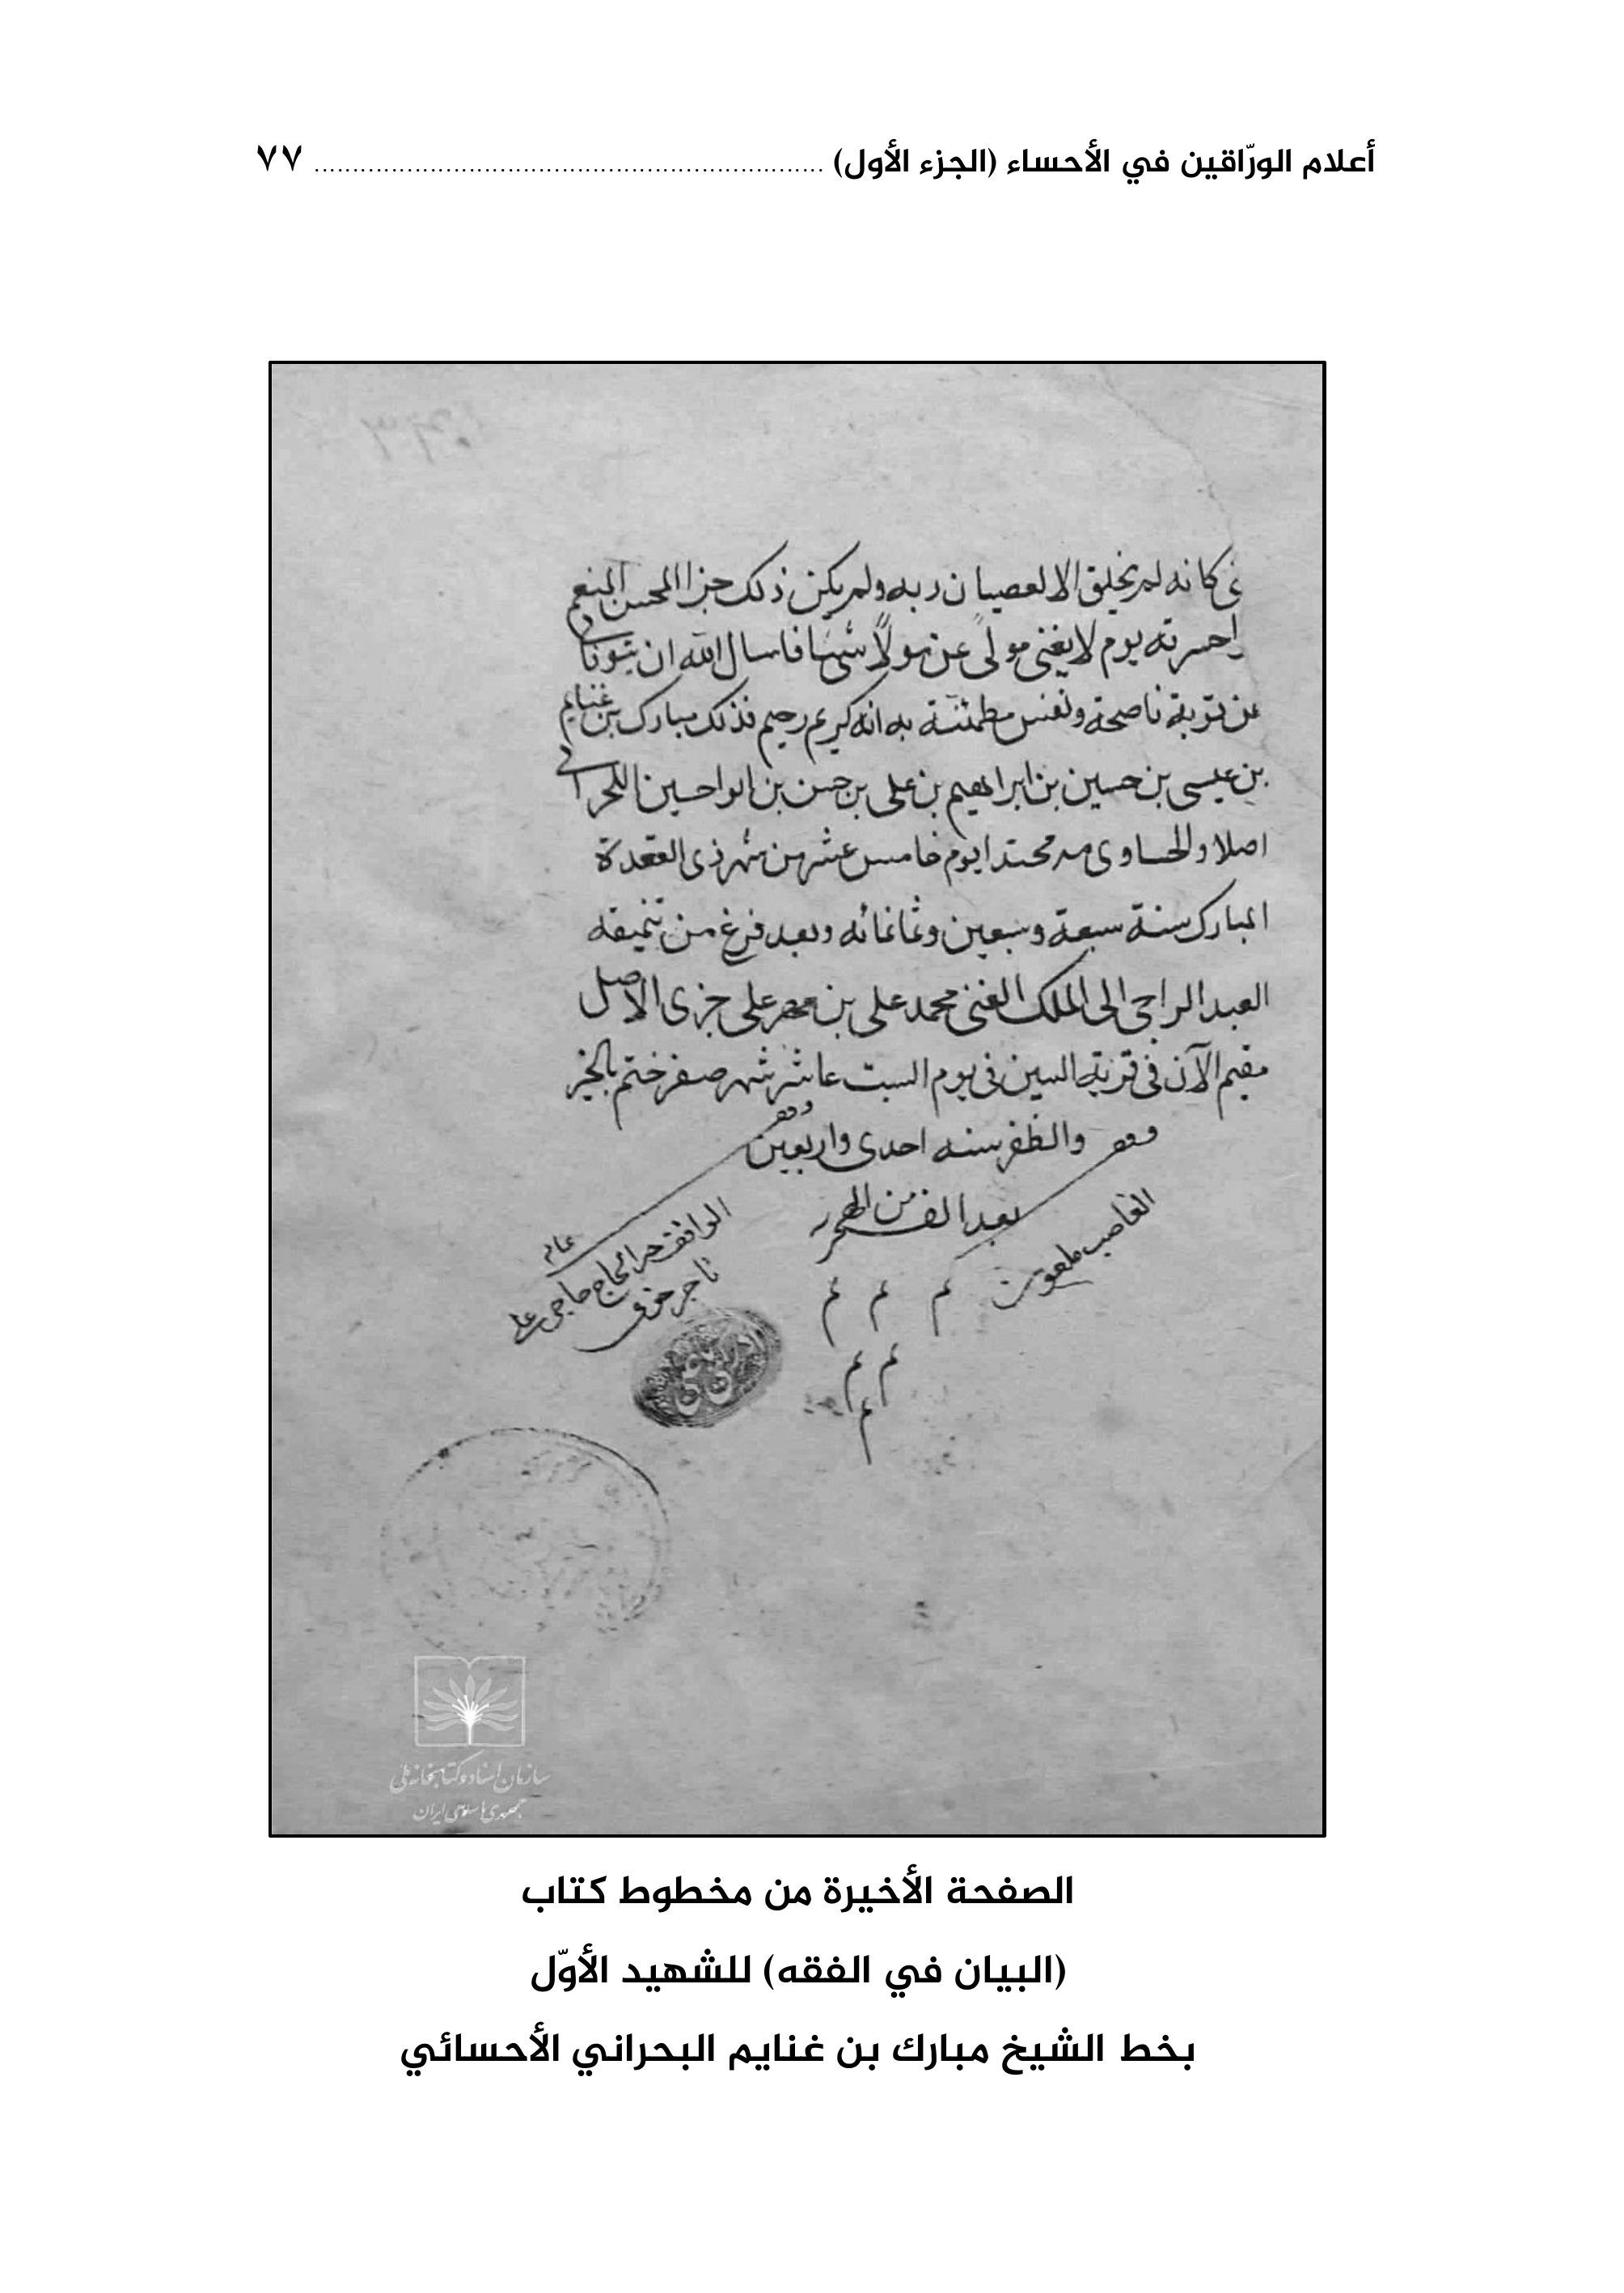 أعلام الورّاقين في الأحساء (الجزء الأول) ............................................................... ٧٧
كانه لم يخلق الا لعصيان ربه ولم يكن ذلك جزا المحسن المنعم
احسرته يوم لا يغنى مولى عن مولاً شيئا فاسال الله ان يتوفانى
من توبة ناصحة ونفس مطمئنة به انه كريم رحيم فذلك مبارك بن غنايم
بن عيسى بن حسين بن ابراهيم بن على بن حسن بن ابو احسين البحرانى
اصلا والحساوى محتدا يوم خامس عشر من شهر ذى القعدة
المبارك سنة سبعة وسبعين وثمانمائه وبعد فرغ من تنميقه
العبد الراجى الى الملك الغنى محمد على بن على جزى الاصل
مقيم الآن فى قرية السين فى يوم السبت عاشر شهر صفر ختم بالخير
وقف والظفر سنه احدى واربعين وقف
بعد الف من الهجره
الغاصب ملعون
عام
الواقف الحاج حاجى على
تاجر
م م م
م م
م
سازمان اسناد و کتابخانه ملی
جمهوری اسلامی ایران
الصفحة الأخيرة من مخطوط كتاب
(البيان في الفقه) للشهيد الأوّل
بخط الشيخ مبارك بن غنايم البحراني الأحسائي